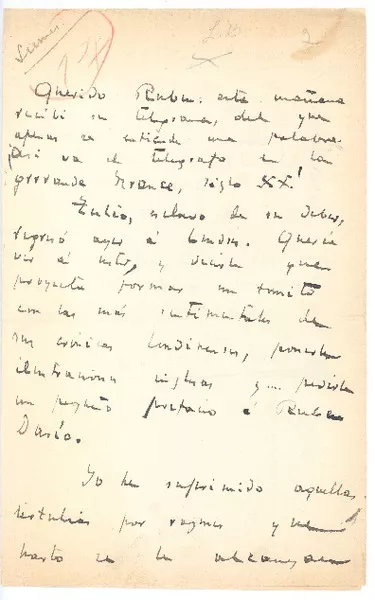 Lunes
L.D
2
Querido Rubén: esta mañana
recibí su telegrama, del que
apenas se entiende una palabra.
¡Así va el telégrafo en la
grrrande France, siglo XX!
Tulio, esclavo de su deber,
regresó ayer á Londres. Quería
ver á usted, y decirle que
proyecta formar un tomito
con las más sentimentales de
sus crónicas londinenses, ponerle
ilustraciones inglesas y... pedirle
un pequeño prefacio á Rubén
Darío.
Yo he suprimido aquellas
tertulias por razones que
harto se le alcanzan